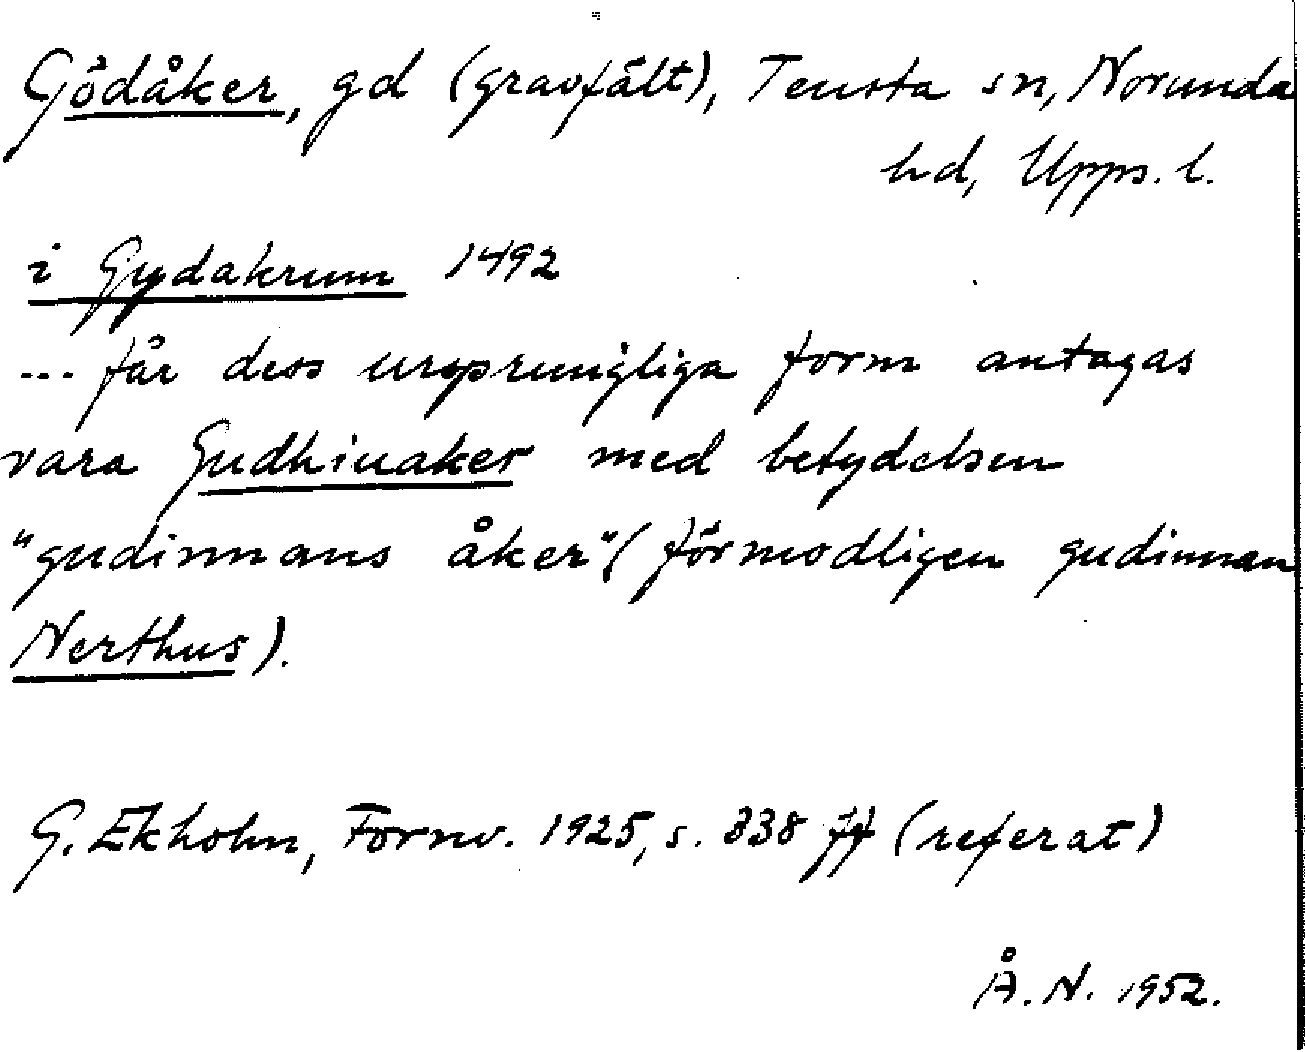 Gödåker, gd (gravfält), Tensta sn, Norunda
hd, Upps. l.
i Gydakrum 1492
... får dess ursprungliga form antagas
vara Gudhiuaker med betydelsen
"gudinnans åker" (förmodligen gudinnan
Nerthus).
G. Ekholm, Fornv. 1925, s. 338 ff (referat)
Å. N. 1952.